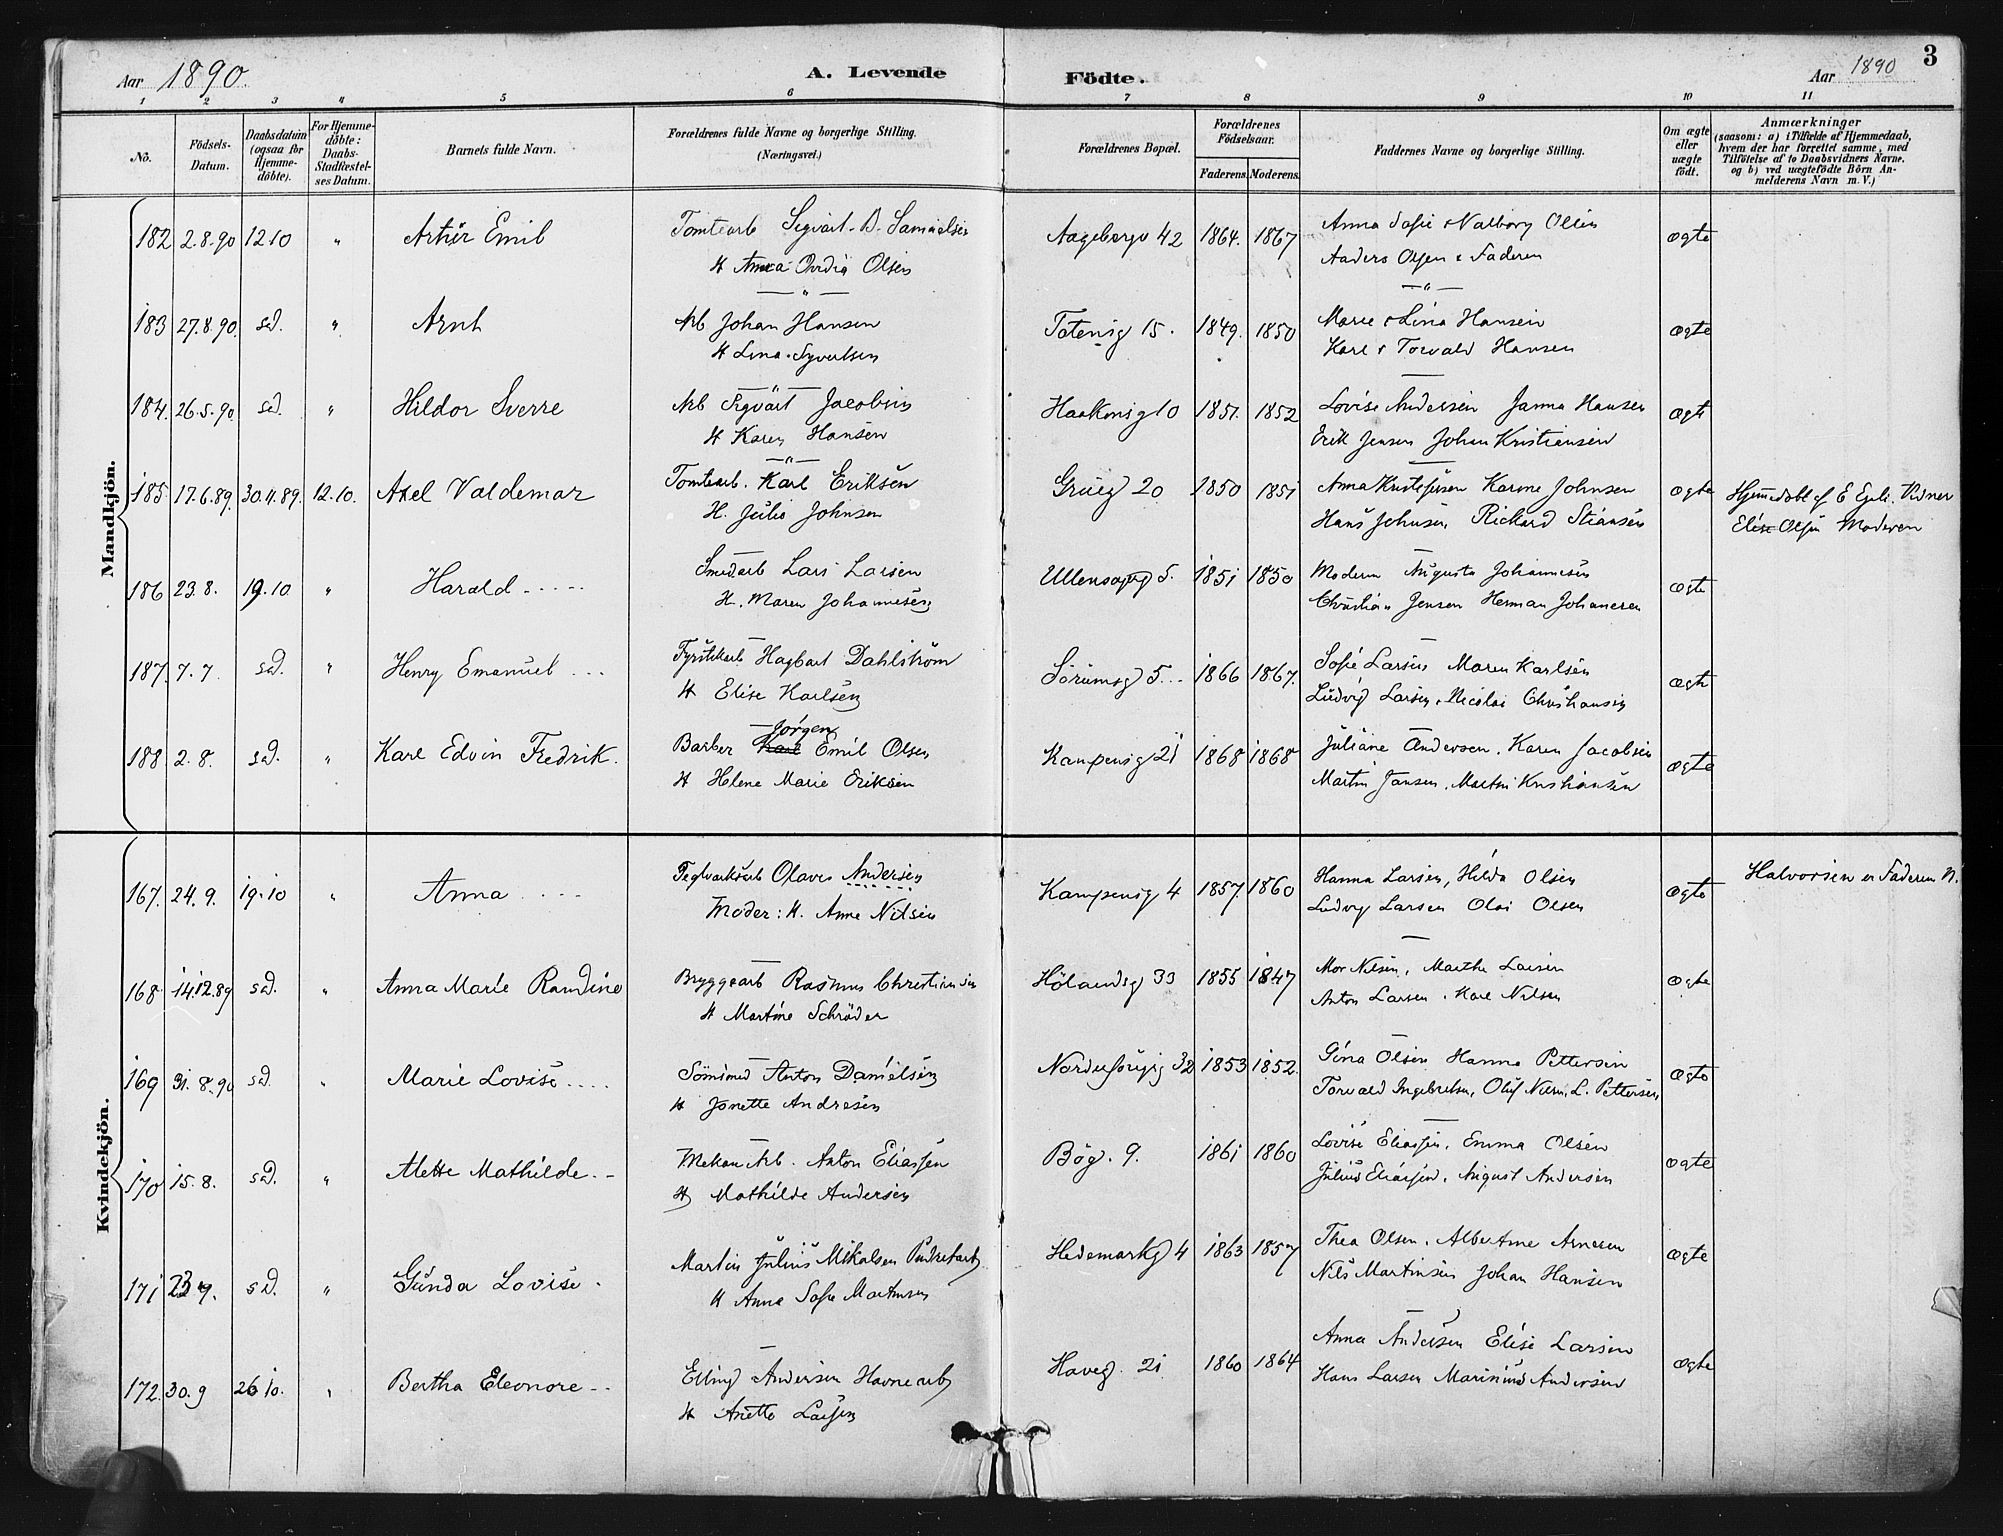 Aar 1890. A. Levende Födte. Aar 1890 3
1 2 3 4 5 6 7 8 9 10 11
No.
Födsels-Datum.
Daabsdatum (ogsaa for Hjemme-döbte).
For Hjemme-döbte: Daabs-Stadfæstel-ses Datum.
Barnets fulde Navn.
Forældrenes fulde Navne og borgerlige Stilling.
(Næringsvei.)
Forældrenes Bopæl.
Forældrenes Födselsaar.
Faderens. Moderens.
Faddernes Navne og borgerlige Stilling.
Om ægte eller uægte födt.
Anmærkninger
(saasom: a) i Tilfælde af Hjemmedaab,
hvem der har forrettet samme, med
Tilföielse af to Daabsvidners Navne.
og b) ved uægtefödte Börn An-
melderens Navn m. V.)
Mandkjön.
182 2.8.90 12 10 " Artúr Emil Tomtearb Sigvart B. Samuelsen Aagebergv 42 1864. 1867 Anna Sofie & Valborg Olsen ægte
H Anna Ovidia Olsen Anders Olsen & Faderen
183 27.8.90. sd. " Arnt Arb Johan Hansen Totensg 15. 1849. 1850 Marie & Lina Hansen ægte
H Lina Syvertsen Karl & Torvald Hansen
184. 26.5.90. sd. " Hildor Sverre Arb Sigvart Jacobsen Haakonsg 10 1851. 1852 Lovise Andersen Janna Hansen ægte
H Karen Hansen Erik Jensen Johan Kristiansen
185. 17.6.89. 30.11.89. 12.10. Axel Valdemar Tomtearb. Karl Eriksen Grueg 20 1850 1851 Anna Kristifersen Karine Johnsen ægte Hjemmedøbt af E Egeli. Vidner
H. Julie Johnsen Hans Johnsen, Rickard Stiansen Elise Olsen Moderen
186 23.8. 19.10 " Harald Smedarb Lars Larsen Ullensagerg 5. 1851 1850 Moderen Augusta Johannesen ægte
H. Maren Johannesen Christian Jensen Herman Johanesen
187. 7.7. sd. " Henry Emanuel Fyrstikarb Hagbart Dahlström Sörumsg 5 1866 1867. Sofie Larsen Maren Karlsen ægte
H Elise Karlsen Ludvig Larsen, Nicolai Christiansen
188. 2.8. sd. " Karl Edvin Fredrik. Barber Jørgen Emil Olsen Kampensg 21 1868 1868 Juliane Andersen. Karen Jacobsen ægte
H Helene Marie Eriksen Martin Jansen. Martin Kristiansen
Kvindekjön.
167. 24.9. 19.10 " Anna Teglverksarb Olaves Andersen Kampensg 4 1857. 1860 Hanna Larsen, Hilda Olsen ægte Halvorsen er Faderen N.
Moder: H. Anne Nilsen Ludvig Larsen Olai Olsen
168. 14.12.89 sd. " Anna Marie Randine Bryggearb Rasmus Christiansen Hölandsg 33 1855 1847 Mor Nilsen, Marthe Larsen ægte
H Martine Schröder Anton Larsen. Karl Nilsen
169 31.8.90 sd. " Marie Lovise Sömsmed Anton Danielsen 32 1853 1852. Gina Olsen Hanna Pettersen ægte
H Jonette Andresen Torvald Ingebretsen, Oluf Nilsen, L. Pettersen,
170 15.8. sd. " Alette Mathilde Mekan Arb. Anton Eliassen Bøg. 9. 1861 1860 Lovise Eliassen, Emma Olsen ægte
H Mathilde Andersen Julius Eliassen, August Andersen
171 23 9. sd. " Gunda Lovise Martin Julius Mikalsen Pudretarb. Hedemarkg 4 1863 1857 Thea Olsen. Albertine Arnesen ægte
H Anna Sofie Martinsen Nils Martinsen Johan Hansen
172. 30.9 26 10. " Bertha Eleonore Elling Andersen Havnearb Haveg. 21 1860 1864 Anna Andersen Elise Larsen ægte
H Anette Larsen Hans Larsen Marinius Andersen